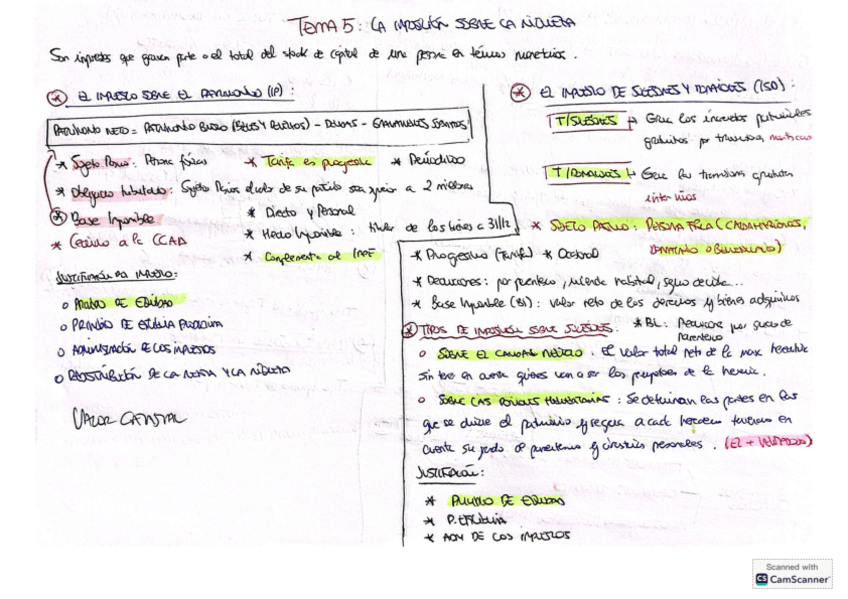 TEMA 5: LA IMPOSICIÓN SOBRE LA RIQUEZA
Son impuestos que gravan parte o el total del stock de capital de una persona en términos monetarios.
* EL IMPUESTO SOBRE EL PATRIMONIO (IP):
PATRIMONIO NETO = PATRIMONIO BRUTO (BIENES Y DERECHOS) - DEUDAS - GRAVÁMENES
* Sujeto Pasivo: Persona física
* Tarifa es progresiva
* Periódico
* Obligación tributaria: Sujeto Pasivo valor de su patrimonio sea superior a 2 millones
* Base Imponible
* Directo y Personal
* Cedido a la CCAA
* Hecho Imponible: titular de los bienes a 31/12
* Complementa al IRPF
JUSTIFICACIÓN DEL IMPUESTO:
o PRINCIPIO DE EQUIDAD
o PRINCIPIO DE EFICIENCIA
o ADMINISTRACIÓN DE LOS IMPUESTOS
o REDISTRIBUCIÓN DE LA RENTA Y LA RIQUEZA
VALOR CATASTRAL
* EL IMPUESTO DE SUCESIONES Y DONACIONES (ISD):
T/SUCESIONES → Grava los incrementos patrimoniales
gratuitos por transmisión mortis causa
T/DONACIONES → Grava las transmisiones gratuitas
inter vivos
* SUJETO PASIVO: PERSONA FÍSICA (CAUSAHABIENTES,
DONATARIO O BENEFICIARIO)
* Progresivo (Tarifa) *
* Deducciones: por parentesco, vivienda habitual, seguro de vida...
* Base Imponible (BI): valor neto de los derechos y bienes adquiridos
* BL: Deducciones por grado de
parentesco
* TIPOS DE IMPOSICIÓN SOBRE SUCESIONES:
o SOBRE EL CAUDAL RELICTO: El valor total neto de la masa hereditaria
sin tener en cuenta quienes van a ser los de la herencia.
o SOBRE LAS PORCIONES HEREDITARIAS: Se determinan las partes en las
que se divide el patrimonio y se grava a cada heredero teniendo en
cuenta su grado de parentesco y circunstancias personales. (EL + UTILIZADO)
JUSTIFICACIÓN:
* PRINCIPIO DE EQUIDAD
* P. EFICIENCIA
* ADM DE LOS IMPUESTOS
Scanned with
CS CamScanner